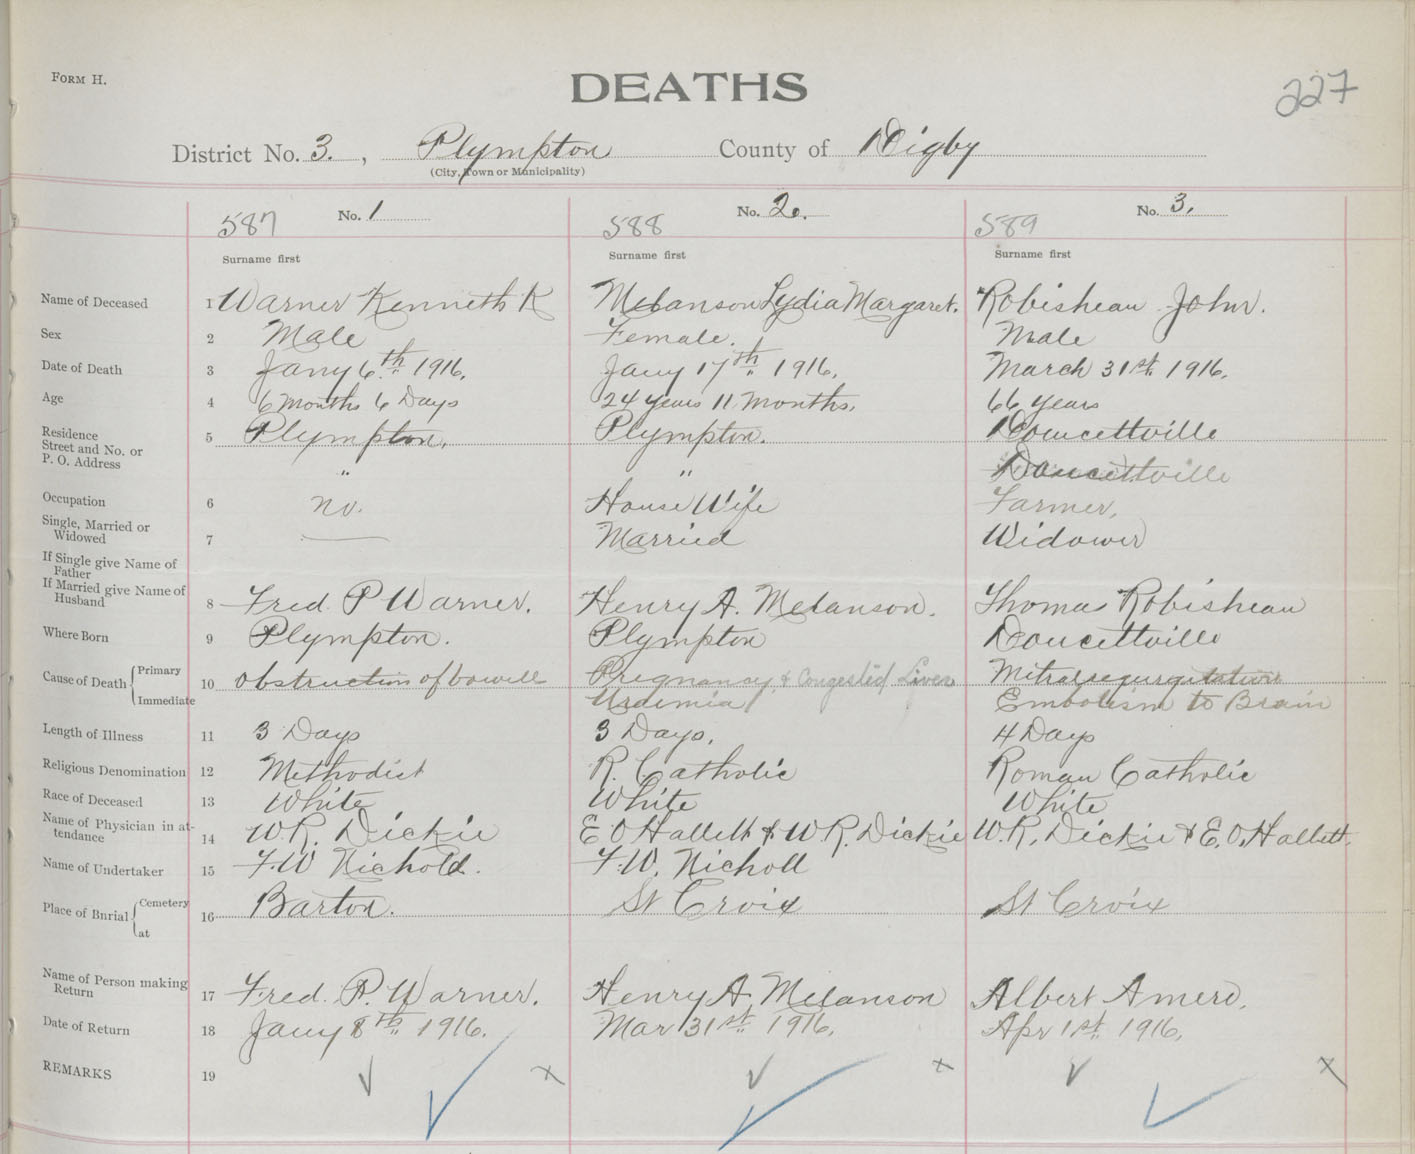 FORM H.
DEATHS
227
District No. 3. , Plympton County of Digby
(City, Town or Municipality)
587 No. 1 588 No. 2. 589 No. 3.
Surname first Surname first Surname first
Name of Deceased 1 Warner Kenneth K Melanson Lydia Margaret. Robisheau John.
Sex 2 Male Female. Male
Date of Death 3 Jany 6th 1916. Jany 17th 1916. March 31st 1916.
Age 4 6 Months 6 Days 24 years 11 Months. 66 years
Residence
Street and No. or
P. O. Address
5 Plympton. Plympton. Doucettville
" " Doucettville
Occupation 6 no. House Wife Farmer.
Single, Married or
Widowed 7 — Married Widower
If Single give Name of
Father
If Married give Name of
Husband 8 Fred P Warner. Henry A. Melanson. Thomas Robisheau
Where Born 9 Plympton. Plympton Doucettville
Cause of Death { Primary
Immediate
10 Obstruction of bowells Pregnancy & Congested Liver Mitral regurgitation
Uraemia Embolism to Brain
Length of Illness 11 3 Days 3 Days. 4 Days
Religious Denomination 12 Methodist R. Catholic Roman Catholic
Race of Deceased 13 White White White
Name of Physician in at-
tendance 14 W.R. Dickie E O Hallett & W R. Dickie W.R. Dickie & E. O. Hallett.
Name of Undertaker 15 F.W Nichold. F.W. Nicholl
Place of Burial { Cemetery
at
16 Barton. St Croix St Croix
Name of Person making
Return 17 Fred. P. Warner. Henry A. Melanson Albert Amero.
Date of Return 18 Jany 8th 1916. Mar 31st 1916. Apr 1st 1916.
REMARKS 19 x x x